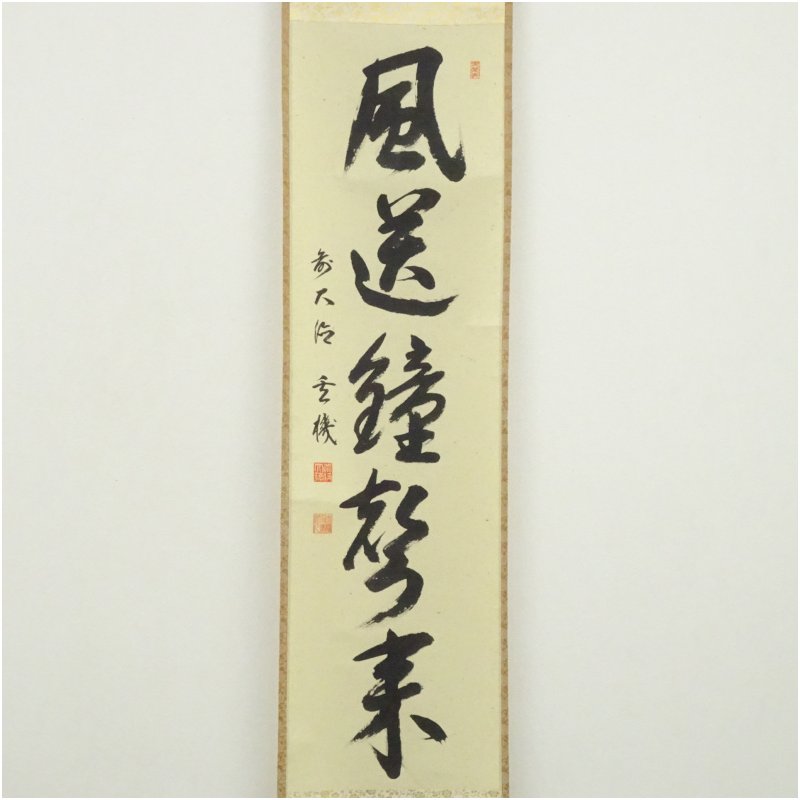 風送鐘聲来
前大徳 玄機